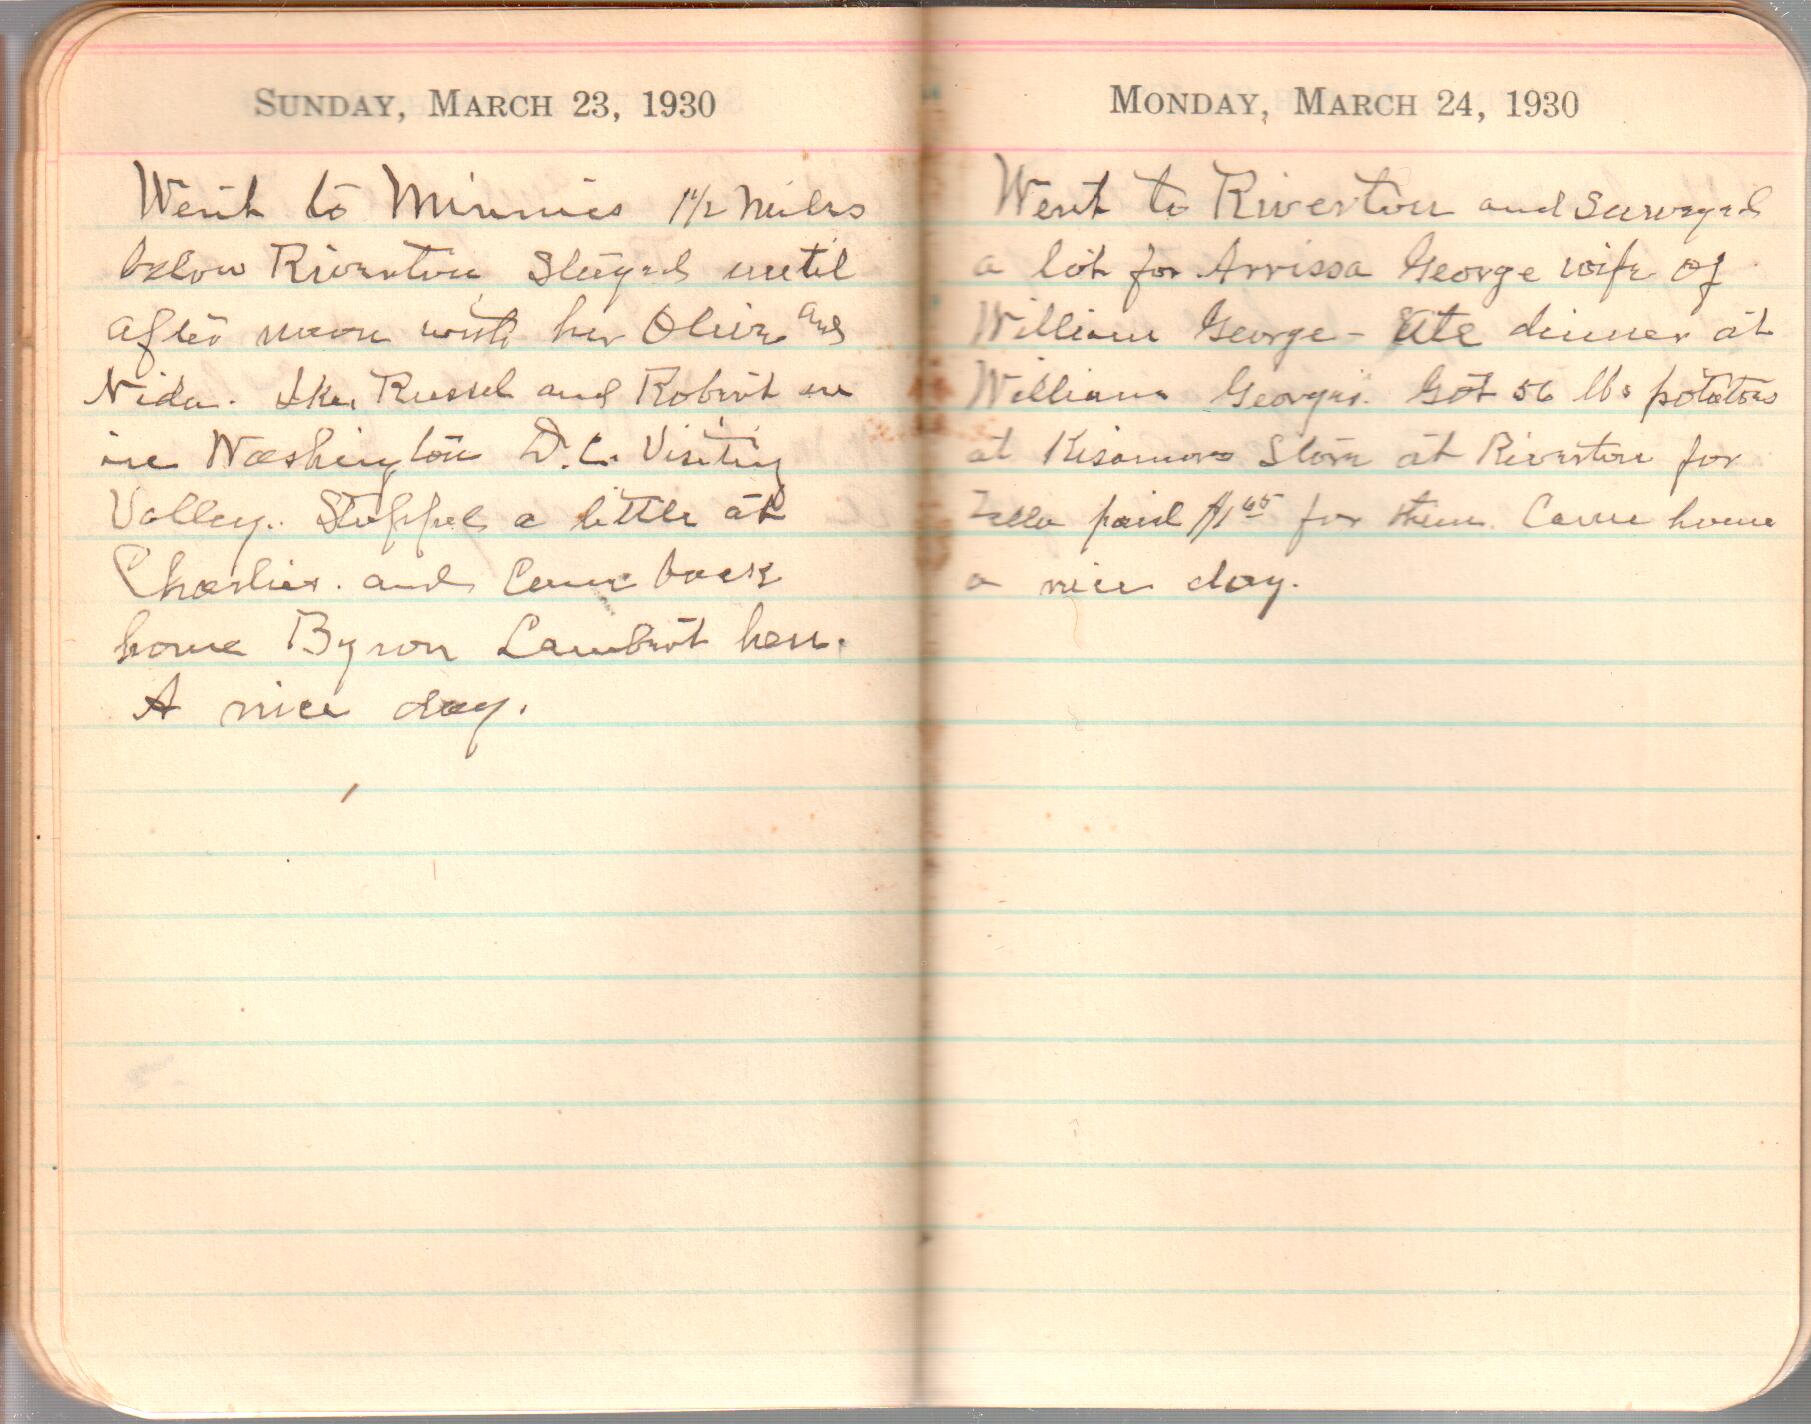 SUNDAY, MARCH 23, 1930
Went to Minnies 1 1/2 Miles
below Riverton Stayed until
after noon with her Olive and
Nida. Ike, Russel and Robert in
in Washington D.C. Visiting
Valley. Stopped a little at
Charlies. and Came back
home Byron Lambert here.
A nice day.
MONDAY, MARCH 24, 1930
Went to Riverton and Surveyed
a lot for Arrissa George wife of
William George - Ate dinner at
William Georges. Got 56 lbs potatoes
at Kisamors Store at Riverton for
paid $1 65 for them. Came home
a nice day.